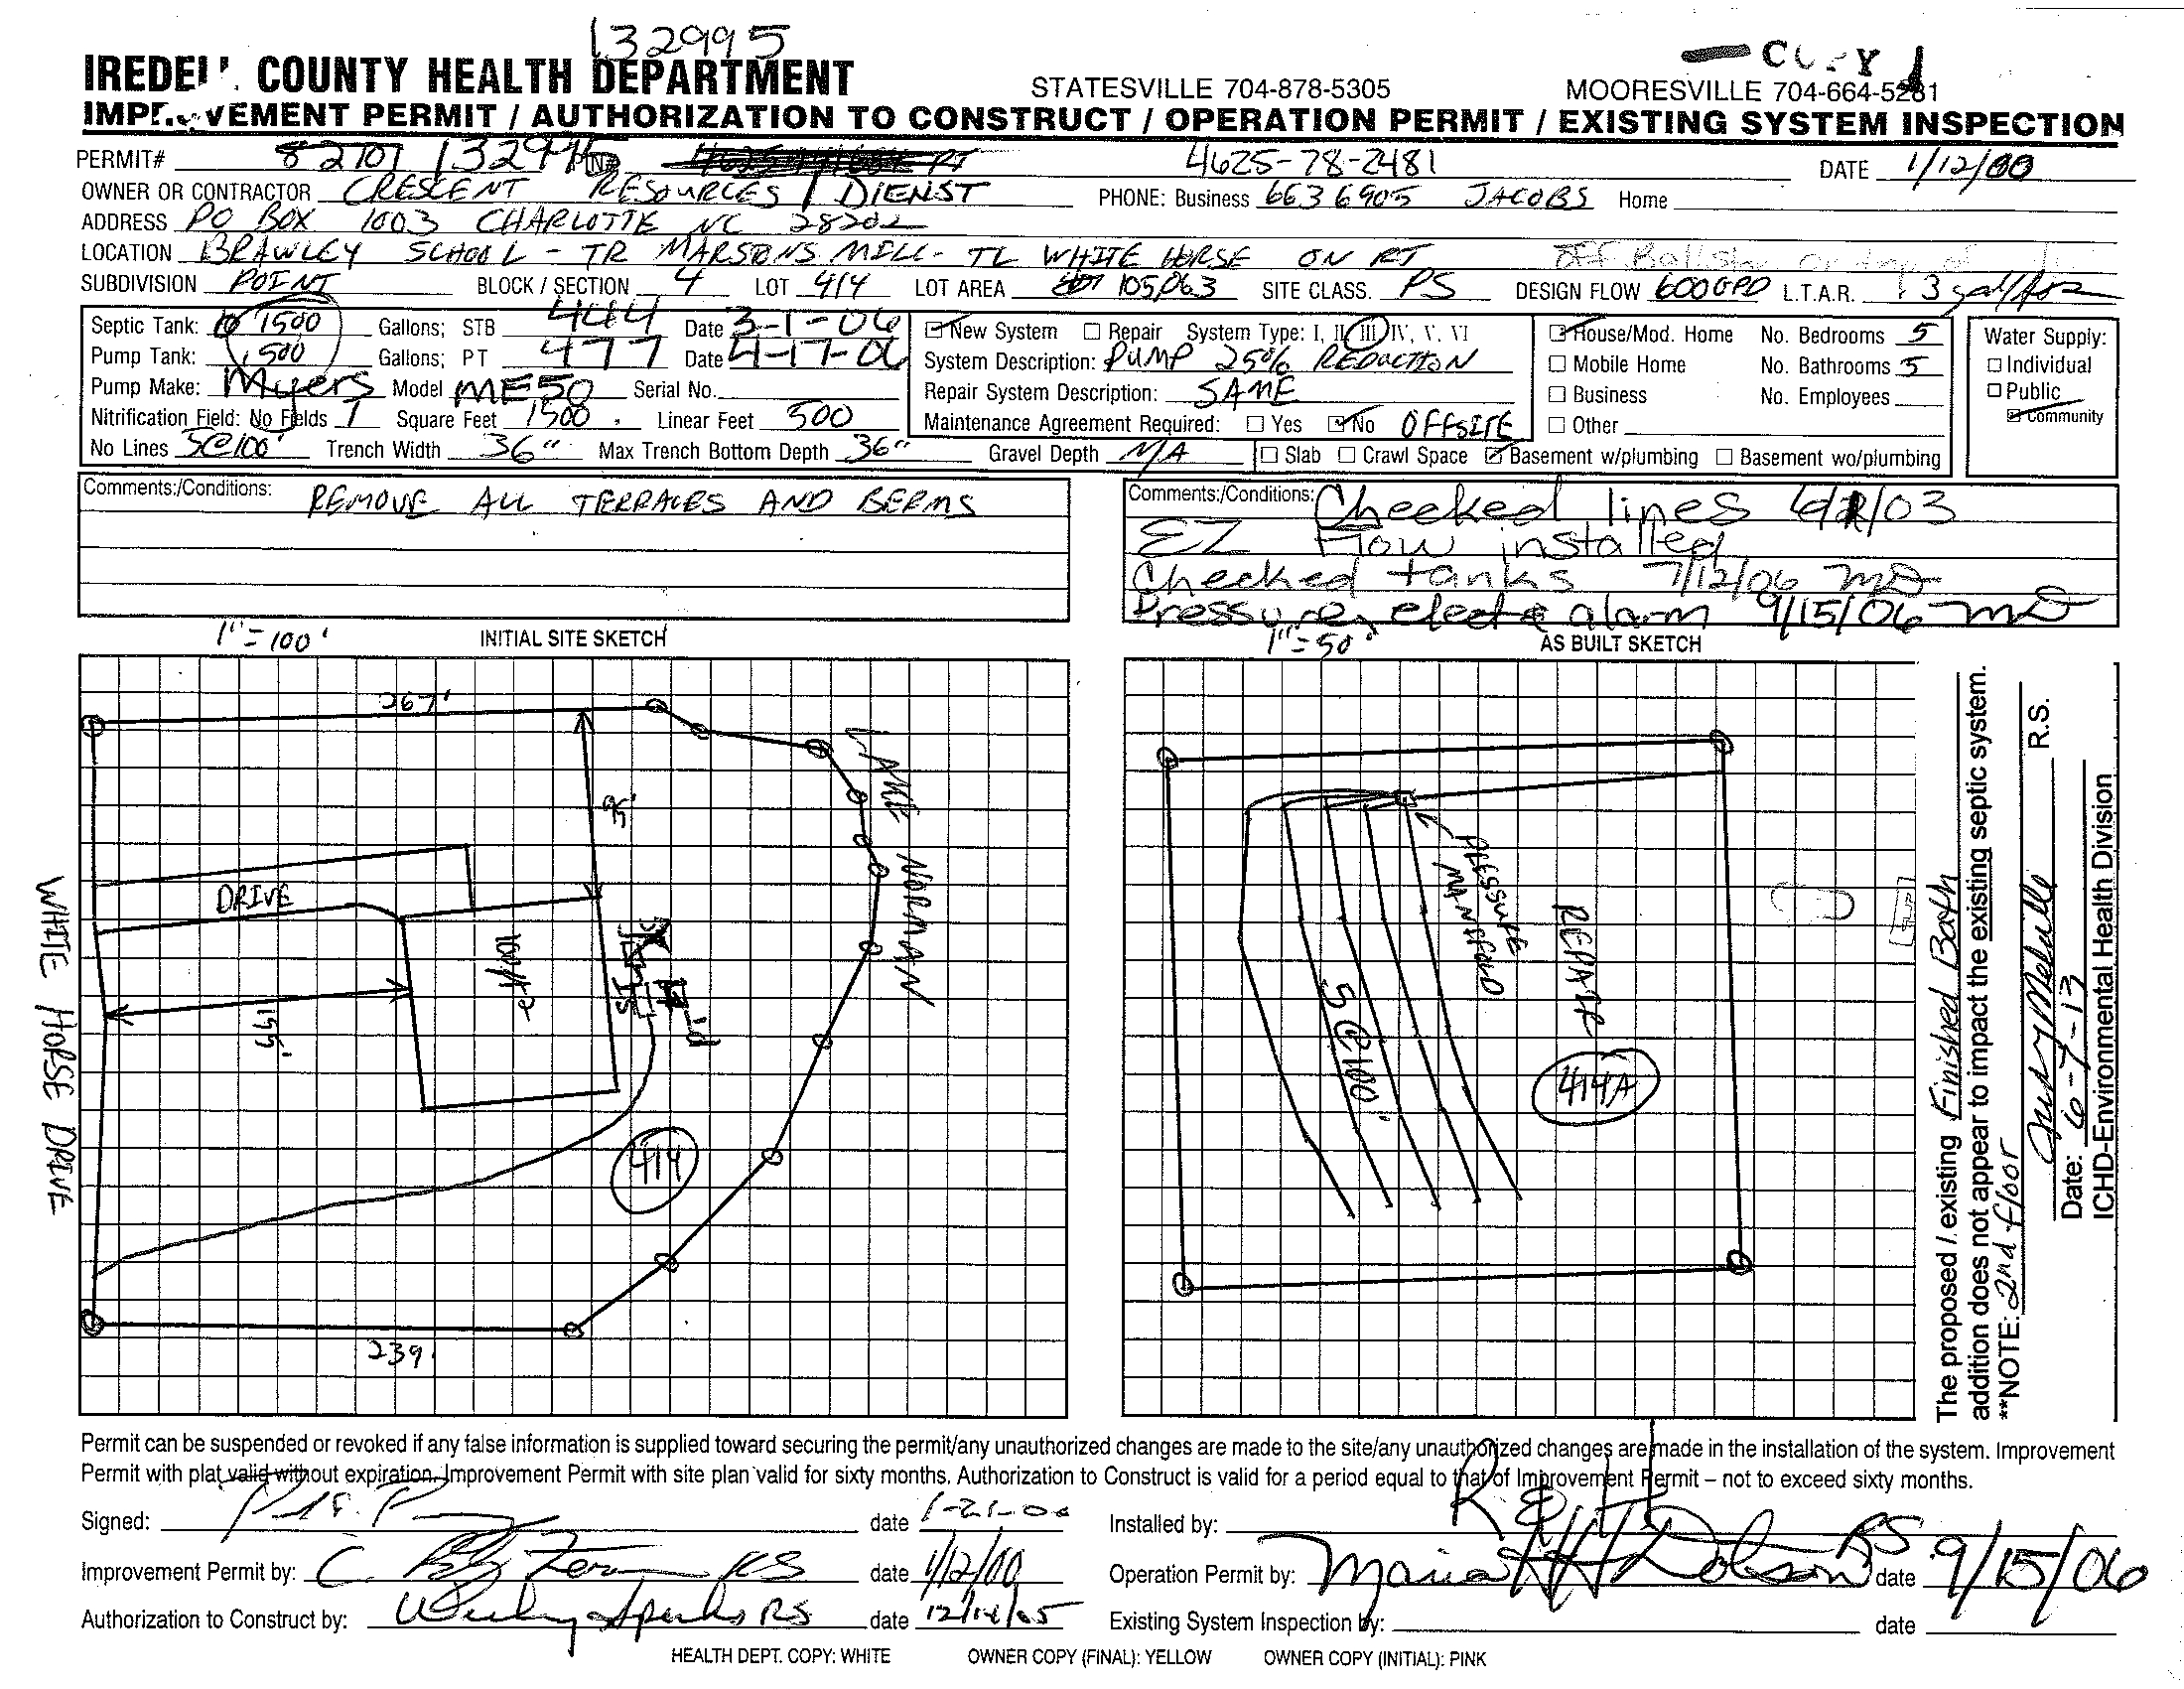 132995
COPY
IREDELL COUNTY HEALTH DEPARTMENT STATESVILLE 704-878-5305 MOORESVILLE 704-664-5281
IMPROVEMENT PERMIT / AUTHORIZATION TO CONSTRUCT / OPERATION PERMIT / EXISTING SYSTEM INSPECTION
PERMIT# 82701 132995 PIN# 4625-78-2481 DATE 1/12/00
OWNER OR CONTRACTOR CRESCENT RESOURCES / DIENST PHONE: Business 663 6905 JACOBS Home
ADDRESS PO BOX 1003 CHARLOTTE NC 28202
LOCATION BRAWLEY SCHOOL - TR MARSTONS MILL - TL WHITE HORSE ON RT
SUBDIVISION POINT BLOCK / SECTION 4 LOT 414 LOT AREA 105,063 SITE CLASS. PS DESIGN FLOW 600GPD L.T.A.R. .3 gal/ft2
Septic Tank: 1500 Gallons; STB 444 Date 3-1-06
Pump Tank: 1,500 Gallons; PT 477 Date 4-17-06
Pump Make: Myers Model ME50 Serial No.
Nitrification Field: No Fields 1 Square Feet 1500 Linear Feet 500
No Lines 5@100' Trench Width 36" Max Trench Bottom Depth 36" Gravel Depth N/A
New System Repair System Type: I, II, III, IV, V, VI
System Description: PUMP 25% REDUCTION
Repair System Description: SAME
Maintenance Agreement Required: Yes No OFFSITE
House/Mod. Home No. Bedrooms 5
Mobile Home No. Bathrooms 5
Business No. Employees
Other
Slab Crawl Space Basement w/plumbing Basement wo/plumbing
Water Supply:
Individual
Public
Community
Comments:/Conditions: REMOVE ALL TERRACES AND BERMS
Comments:/Conditions: Checked lines
EZ Flow installed
Checked tanks 7/12/06 MD
Pressure, elect & alarm 9/15/06 MD
1"=100' INITIAL SITE SKETCH
267'
95'
LAKE NORMAN
DRIVE
WHITE HORSE DRIVE
414
239'
1"=50' AS BUILT SKETCH
PRESSURE MANIFOLD
REPAIR
5@100'
414A
The proposed / existing Finished Bath
addition does not appear to impact the existing septic system.
**NOTE: 2nd floor
R.S.
Date: 6-7-13
ICHD-Environmental Health Division
Permit can be suspended or revoked if any false information is supplied toward securing the permit/any unauthorized changes are made to the site/any unauthorized changes are made in the installation of the system. Improvement
Permit with plat valid without expiration. Improvement Permit with site plan valid for sixty months. Authorization to Construct is valid for a period equal to that of Improvement Permit – not to exceed sixty months.
Signed: date 1-21-00
Installed by: R & H
Improvement Permit by: date 1/12/00
Operation Permit by: Maria H Dotson RS date 9/15/06
Authorization to Construct by: RS date 12/14/05
Existing System Inspection by: date
HEALTH DEPT. COPY: WHITE OWNER COPY (FINAL): YELLOW OWNER COPY (INITIAL): PINK